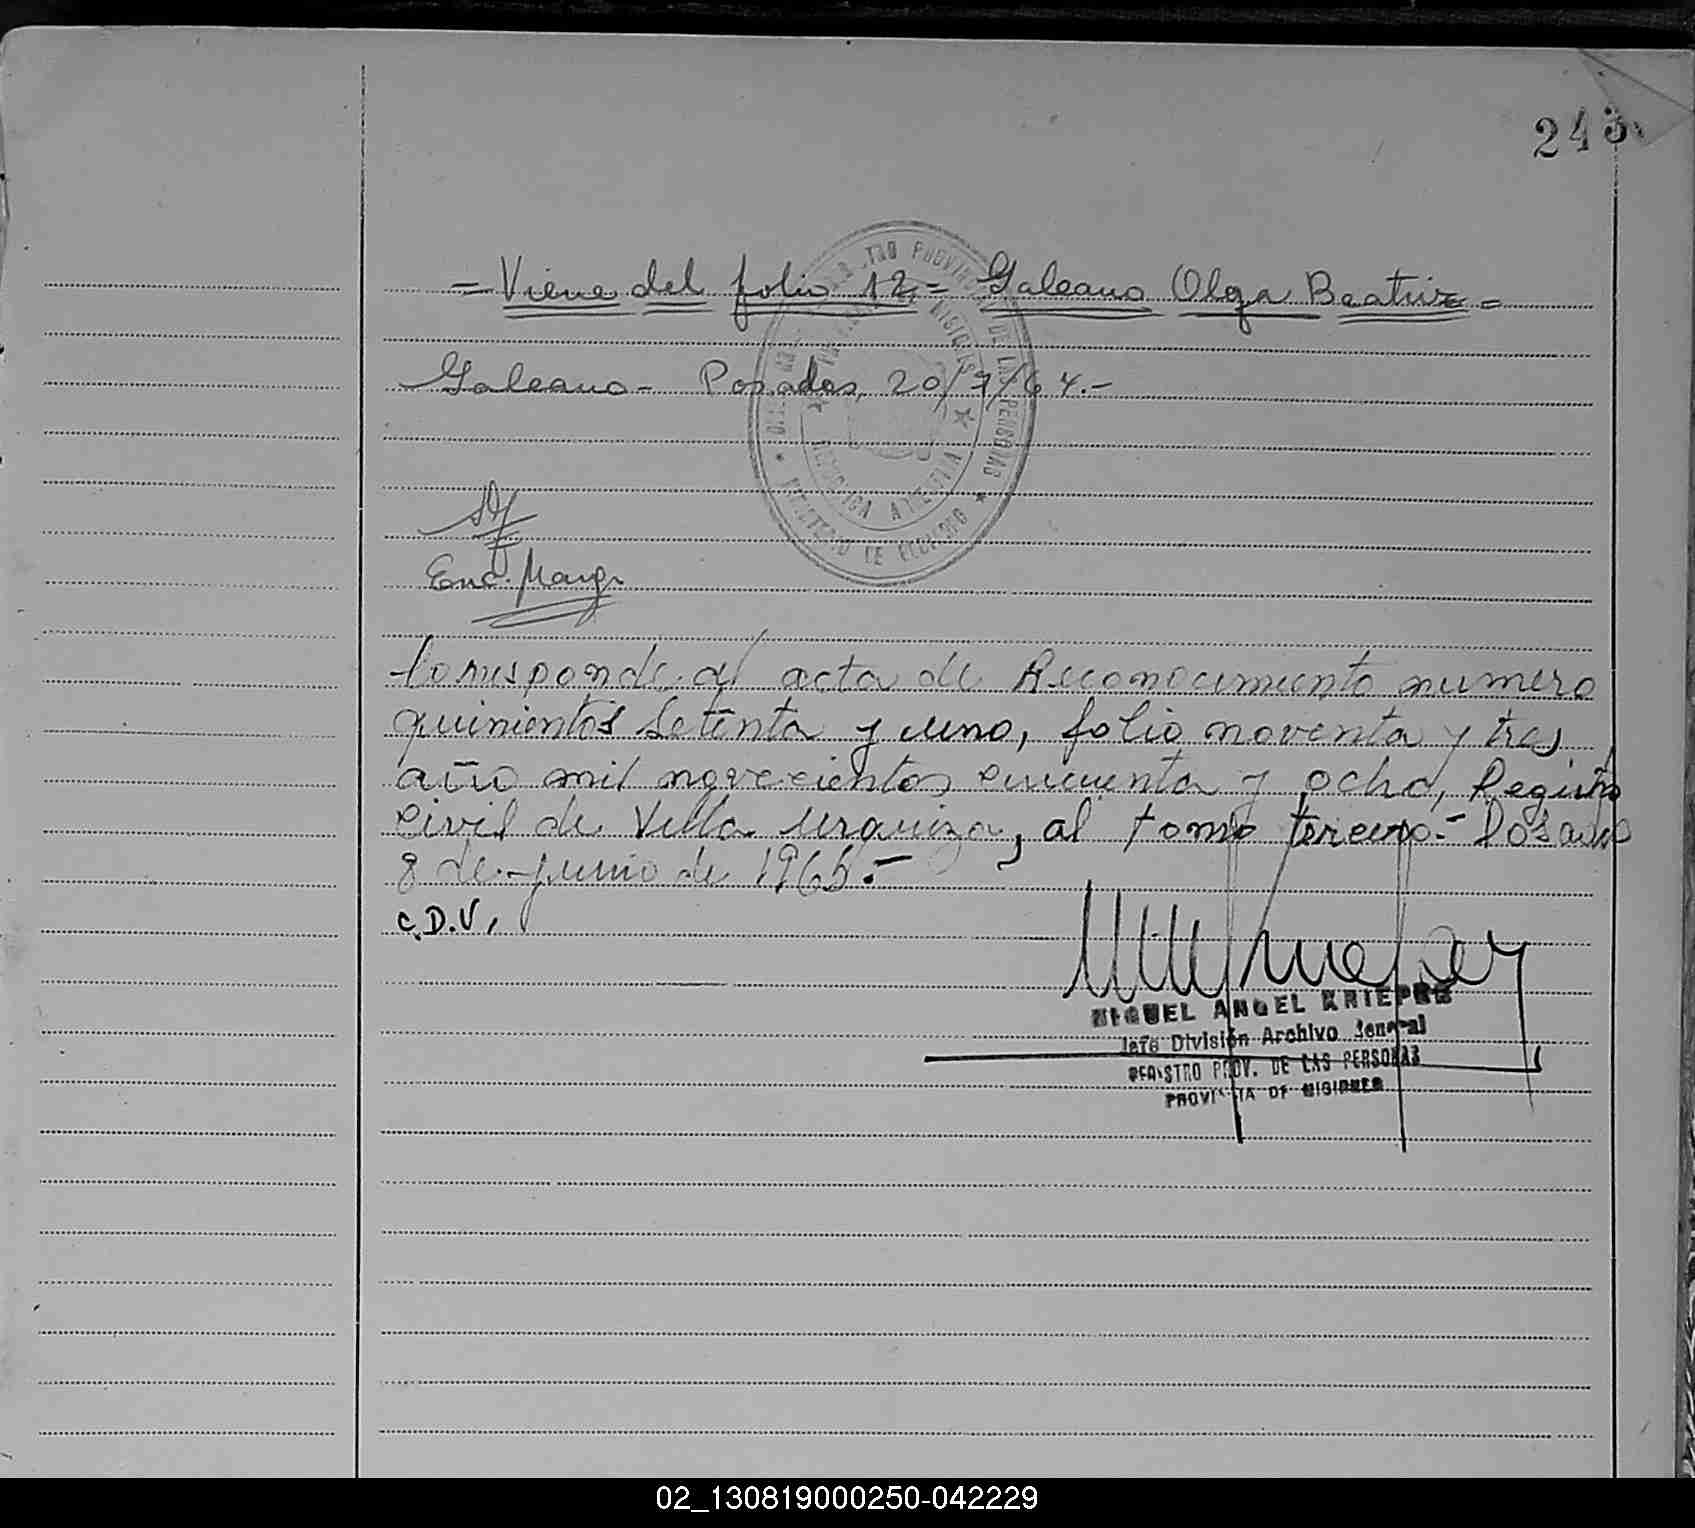 243
= Viene del folio 12,= Galeano Olga Beatriz =
Galeano - Posadas, 20/7/64.-
Enc. Marg.
Corresponde al acta de Reconocimiento numero
quinientos setenta y uno, folio noventa y tres
año mil novecientos cincuenta y ocho, Registro
Civil de Villa Urquiza, al tomo tercero.- Posadas
8 de junio de 1965.-
C.D.V,
MIGUEL ANGEL KRIEPER
Jefe División Archivo General
REGISTRO PROV. DE LAS PERSONAS
PROVINCIA DE MISIONES
02_130819000250-042229